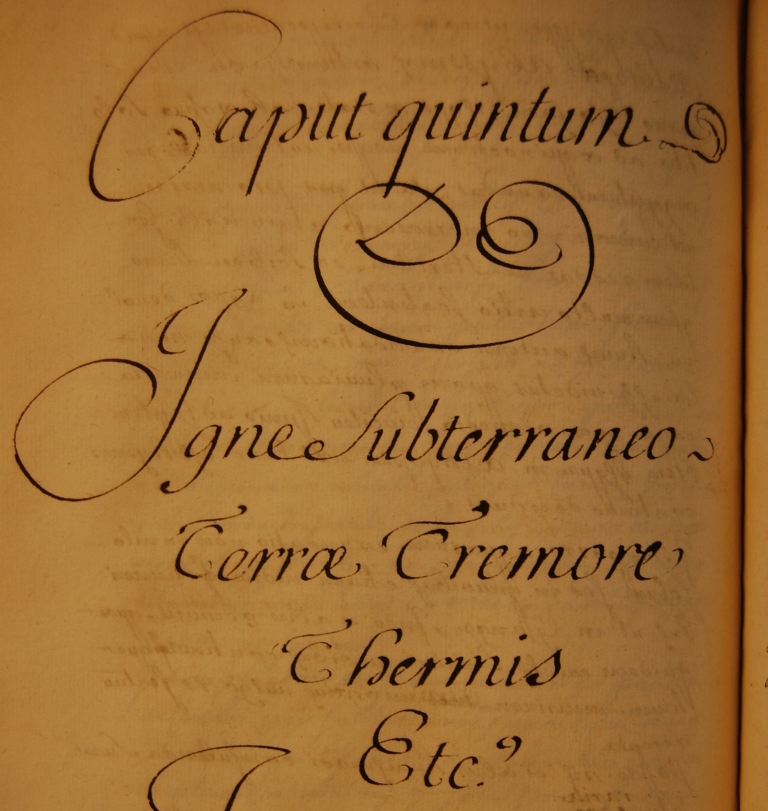 Caput quintum.
De
Igne Subterraneo
Terræ Tremore
Thermis
Etc.